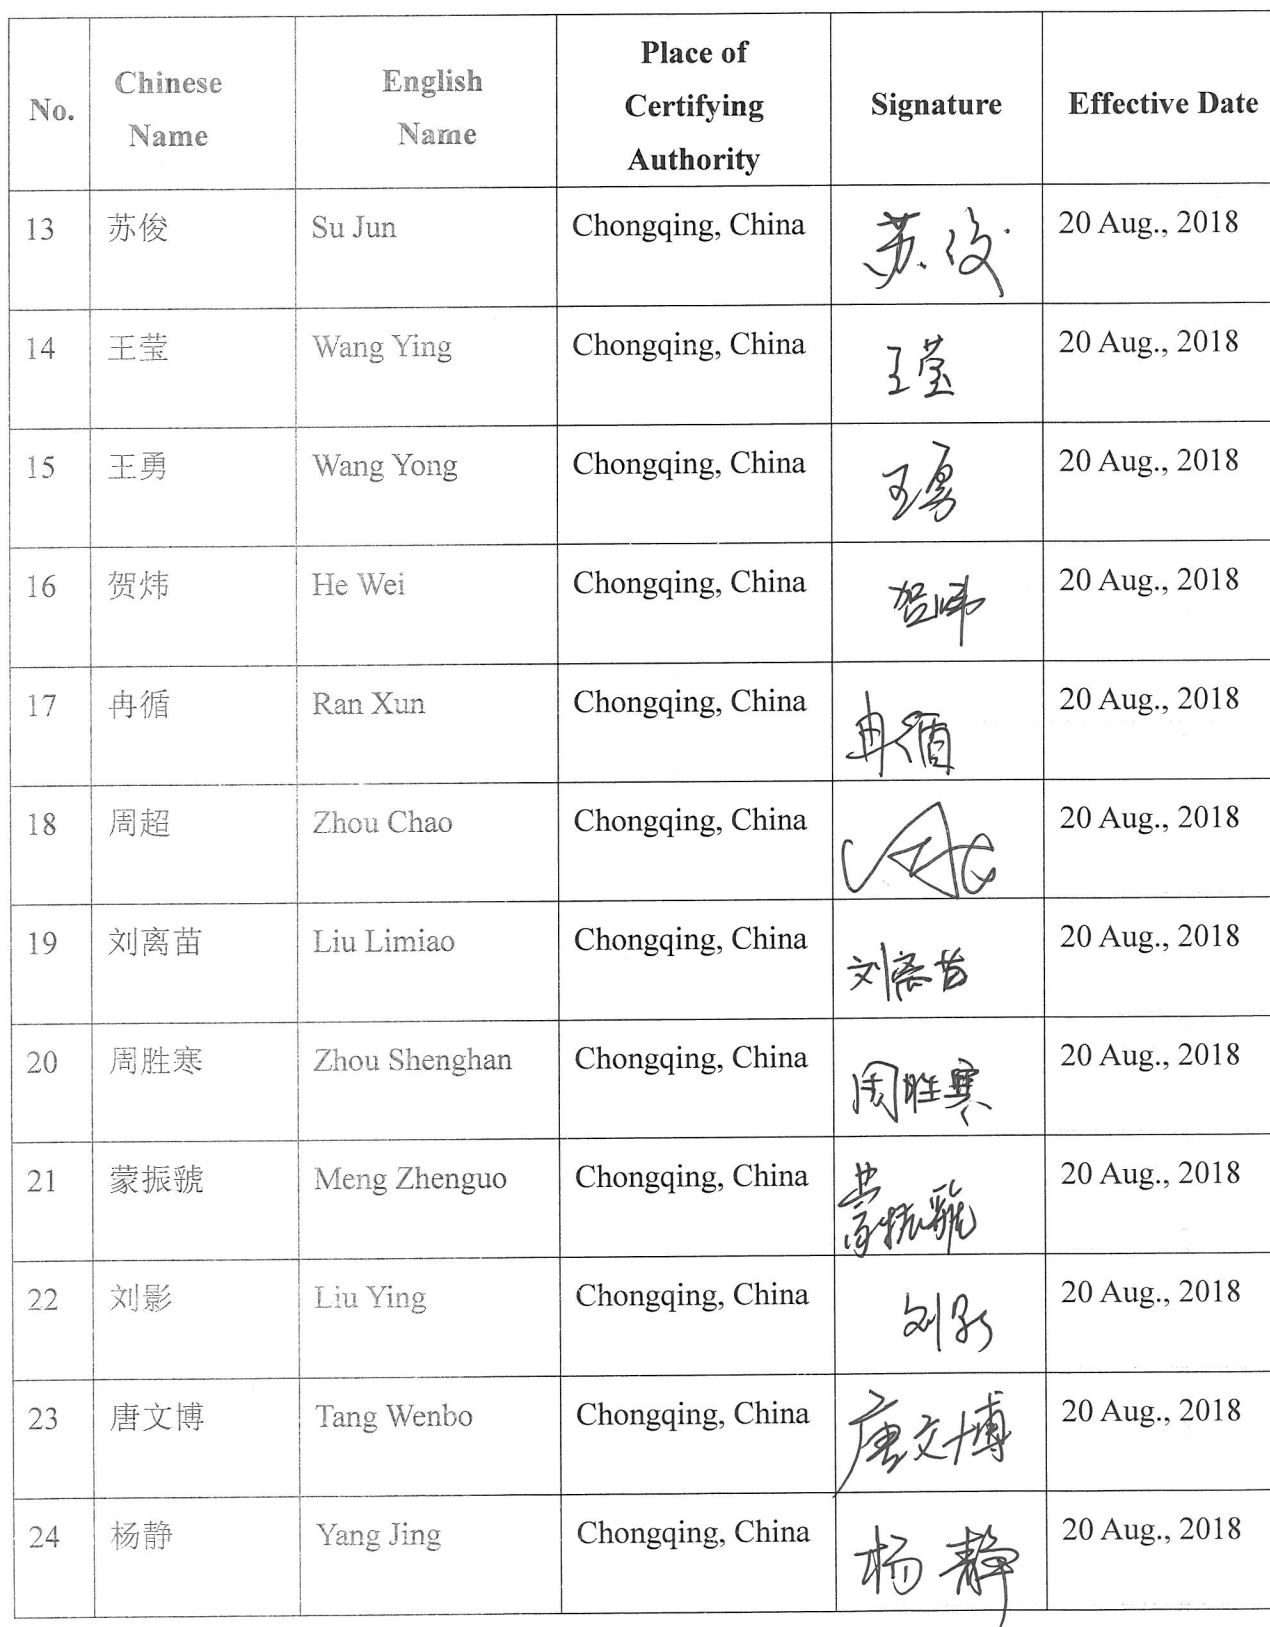 No.
Chinese
Name
English
Name
Place of
Certifying
Authority
Signature
Effective Date
13 苏俊 Su Jun Chongqing, China 苏俊 20 Aug., 2018
14 王莹 Wang Ying Chongqing, China 王莹 20 Aug., 2018
15 王勇 Wang Yong Chongqing, China 王勇 20 Aug., 2018
16 贺炜 He Wei Chongqing, China 贺炜 20 Aug., 2018
17 冉循 Ran Xun Chongqing, China 冉循 20 Aug., 2018
18 周超 Zhou Chao Chongqing, China 20 Aug., 2018
19 刘离苗 Liu Limiao Chongqing, China 刘离苗 20 Aug., 2018
20 周胜寒 Zhou Shenghan Chongqing, China 周胜寒 20 Aug., 2018
21 蒙振虢 Meng Zhenguo Chongqing, China 蒙振虢 20 Aug., 2018
22 刘影 Liu Ying Chongqing, China 刘影 20 Aug., 2018
23 唐文博 Tang Wenbo Chongqing, China 唐文博 20 Aug., 2018
24 杨静 Yang Jing Chongqing, China 杨静 20 Aug., 2018